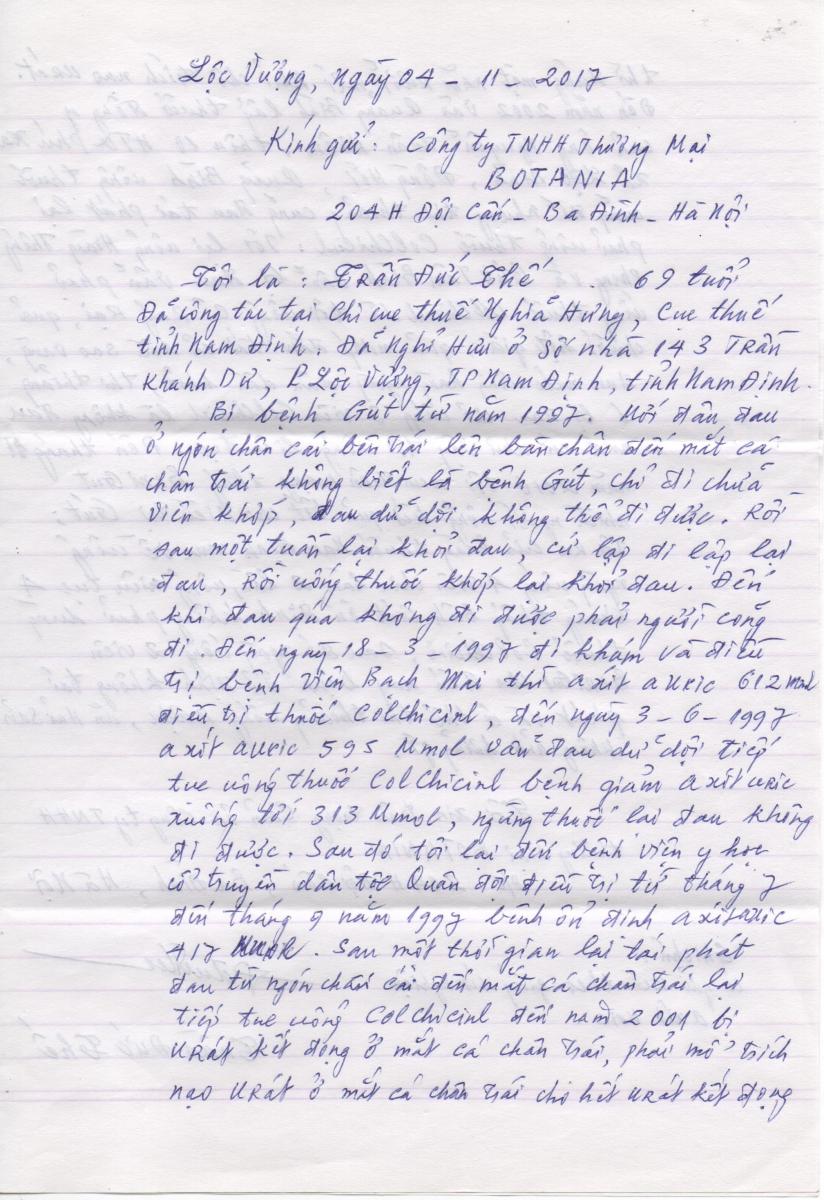 Lộc Vượng, ngày 04 - 11 - 2017
Kính gửi: Công ty TNHH Thương Mại
BOTANIA
204H Đội Cấn - Ba Đình - Hà Nội
Tôi là : Trần Đức Thế . 69 tuổi
Đã công tác tại Chi cục thuế Nghĩa Hưng, Cục thuế
tỉnh Nam Định. Đã Nghỉ Hưu ở số nhà 143 Trần
Khánh Dư, P Lộc Vượng, TP Nam Định, tỉnh Nam Định.
Bị bệnh Gút từ năm 1997. Mới đầu đau
ở ngón chân cái bên trái lên bàn chân đến mắt cá
chân trái không biết là bệnh Gút, chỉ đi chữa
viên khớp, đau dữ dội không thể đi được. Rồi
sau một tuần lại khỏi đau, cứ lập đi lập lại
đau, rồi uống thuốc khớp lại khỏi đau. Đến
khi đau quá không đi được phải người cõng
đi. Đến ngày 18 - 3 - 1997 đi khám và điều
trị bệnh viện Bạch Mai thì axit auric 612 mmol
điều trị thuốc Colchicinl, đến ngày 3 - 6 - 1997
axít auric 595 Mmol vẫn đau dữ dội tiếp
tục uống thuốc Colchicinl bệnh giảm axít uric
xuống tới 313 Mmol, ngừng thuốc lại đau không
đi được. Sau đó tôi lại đến bệnh viện y học
cổ truyền dân tộc Quân đội điều trị từ tháng 7
đến tháng 9 năm 1997 bệnh ổn định axít auric
417. Sau một thời gian lại tái phát
đau từ ngón chân cái đến mắt cá chân trái lại
tiếp tục uống Colchicinl đến năm 2001 bị
URát kết đọng ở mắt cá chân trái, phải mổ trích
nạo URát ở mắt cá chân trái cho hết URát kết đọng